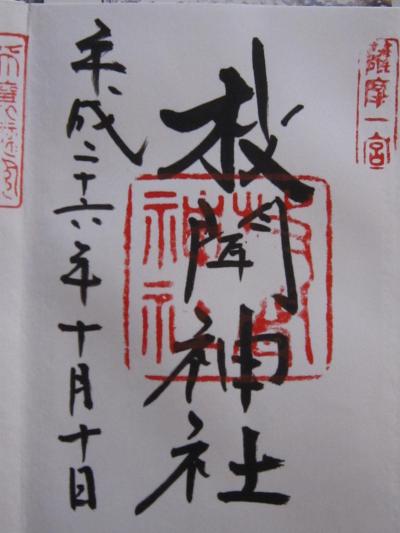 薩摩一宮
枚聞神社
枚聞神社
平成二十六年十月十日